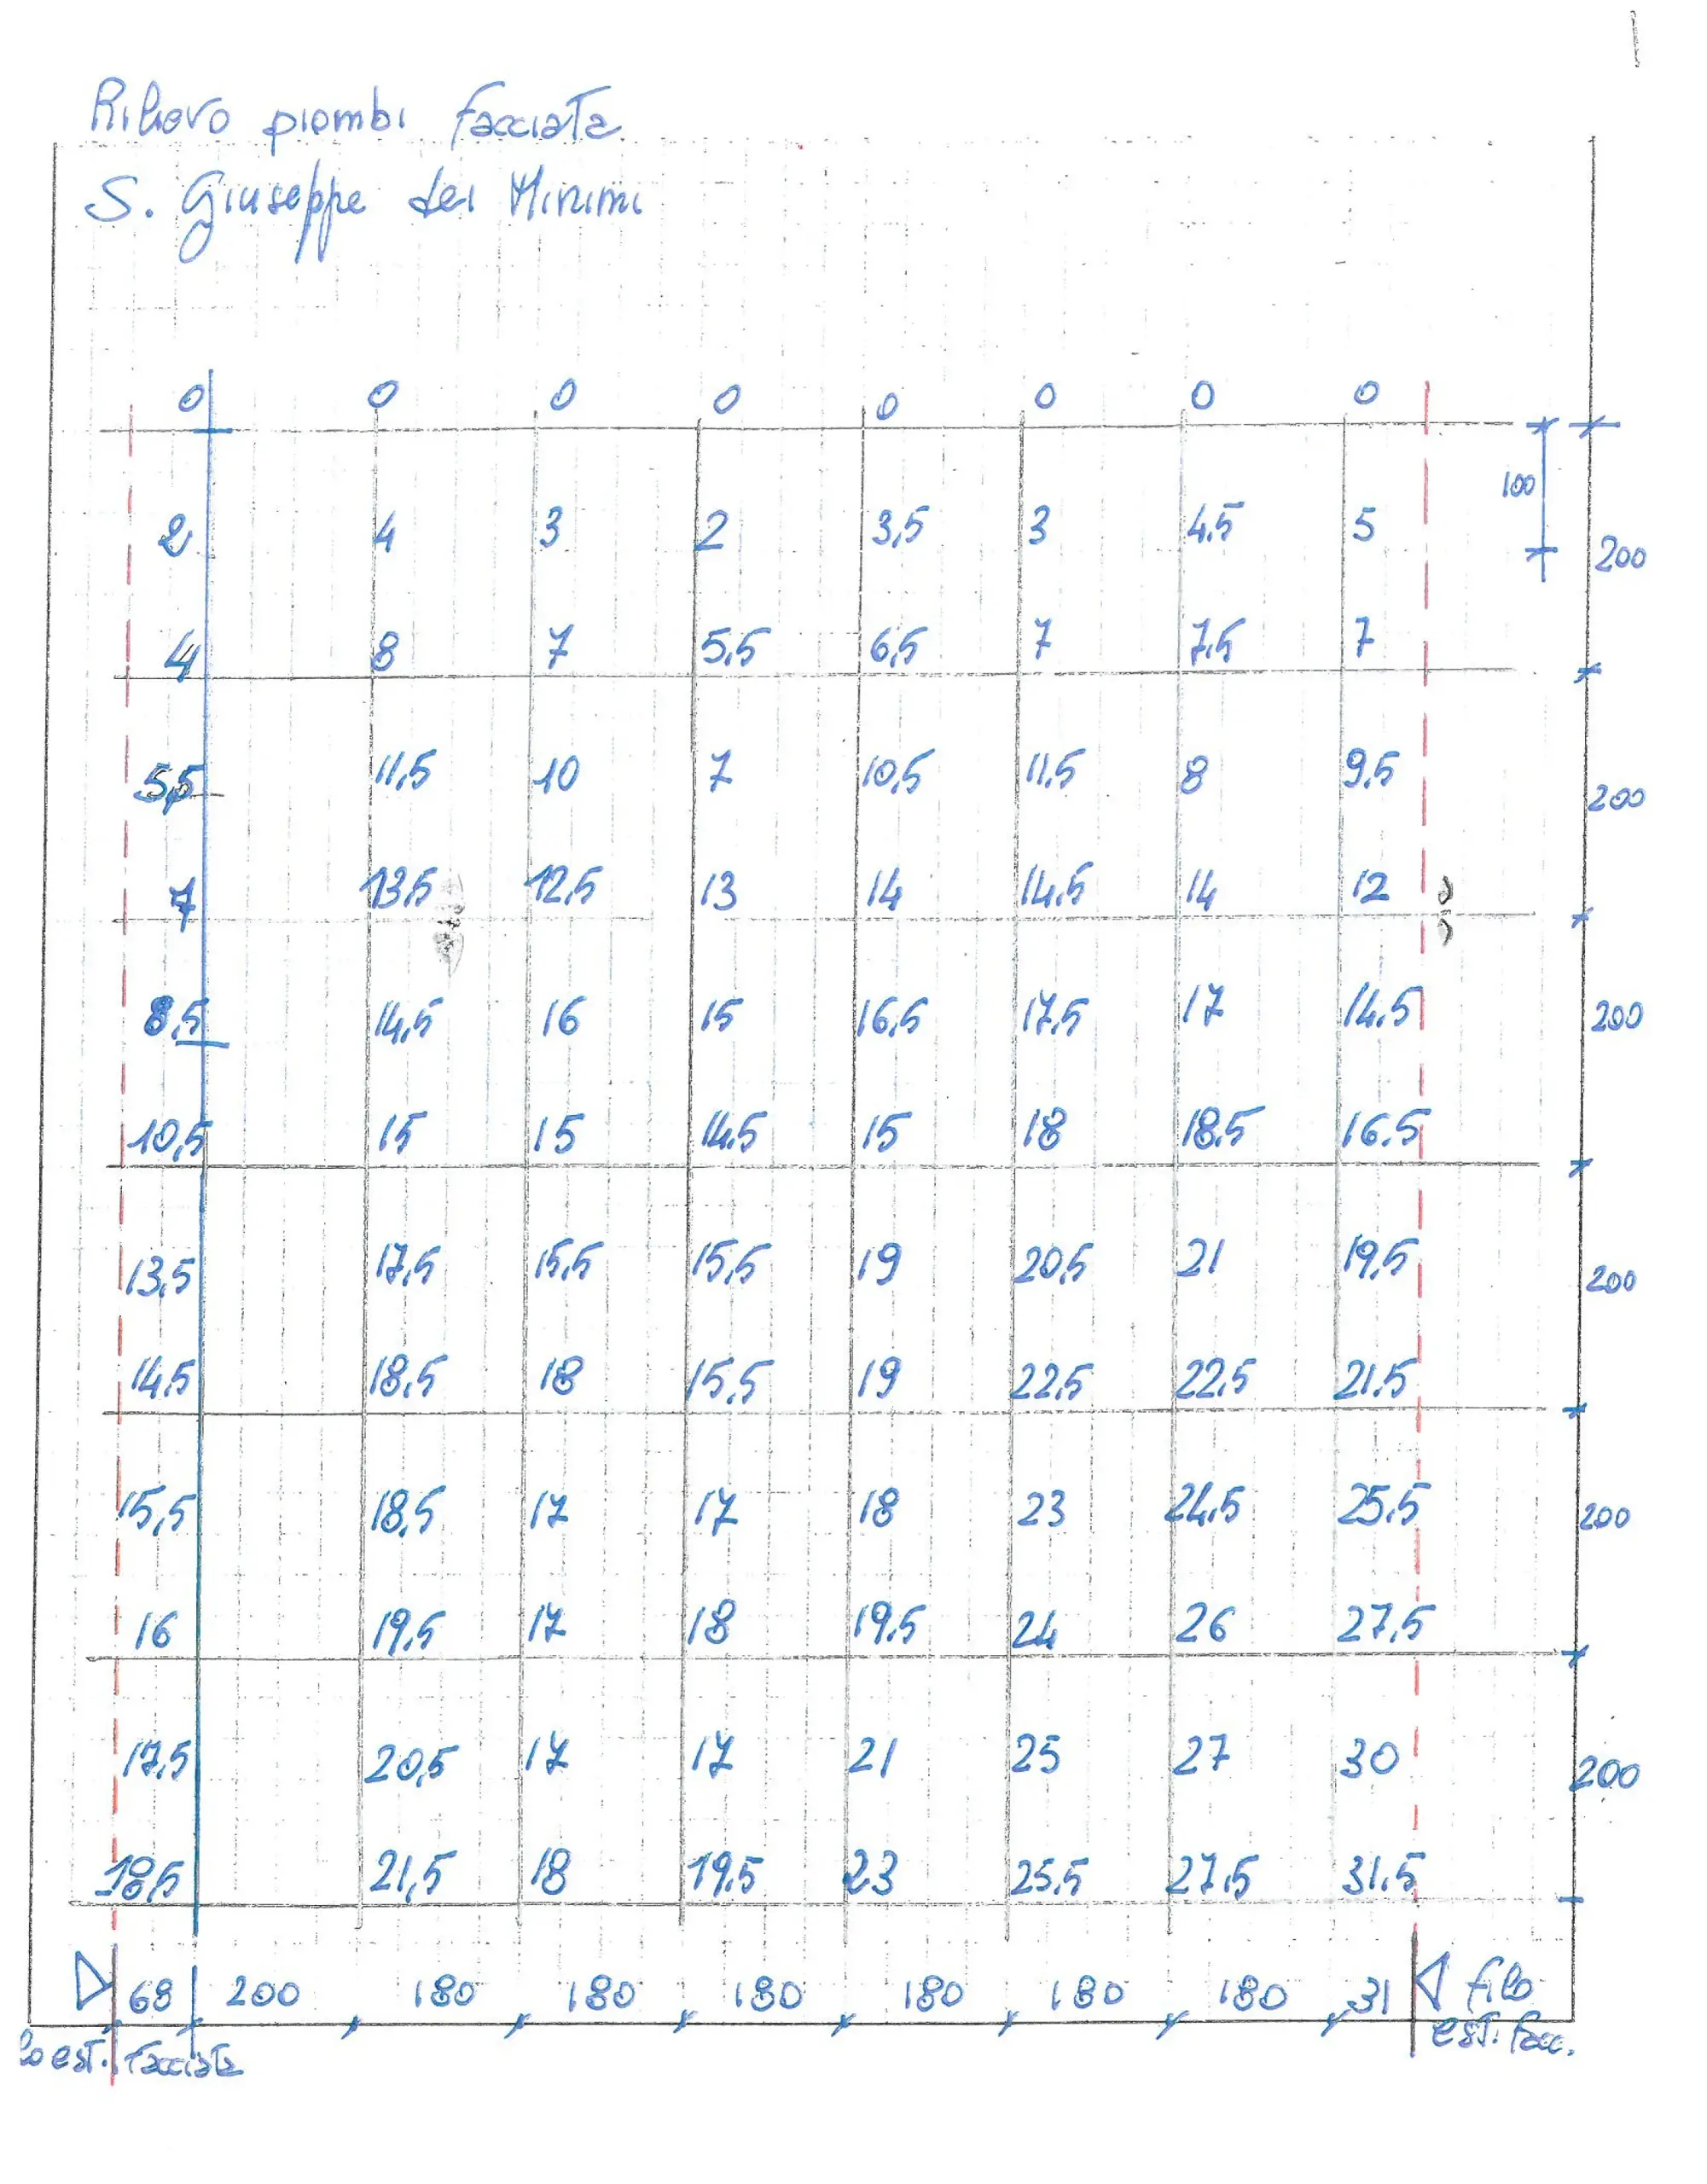 Rilievo piombi facciata
S. Giuseppe dei Minimi
0 0 0 0 0 0 0 0
100
2 4 3 2 3,5 3 4,5 5
200
4 8 7 5,5 6,5 7 7,5 7
5,5 11,5 10 7 10,5 11,5 8 9,5
200
7 13,5 12,5 13 14 14,5 14 12
8,5 14,5 16 15 16,5 17,5 17 14,5
200
10,5 15 15 14,5 15 18 18,5 16,5
13,5 17,5 15,5 15,5 19 20,5 21 19,5
200
14,5 18,5 18 15,5 19 22,5 22,5 21,5
15,5 18,5 17 17 18 23 24,5 25,5
200
16 19,5 17 18 19,5 24 26 27,5
17,5 20,5 17 17 21 25 27 30
200
18,5 21,5 18 19,5 23 25,5 27,5 31,5
68 200 180 180 180 180 180 180 31 filo
lo est. facciata est. facc.